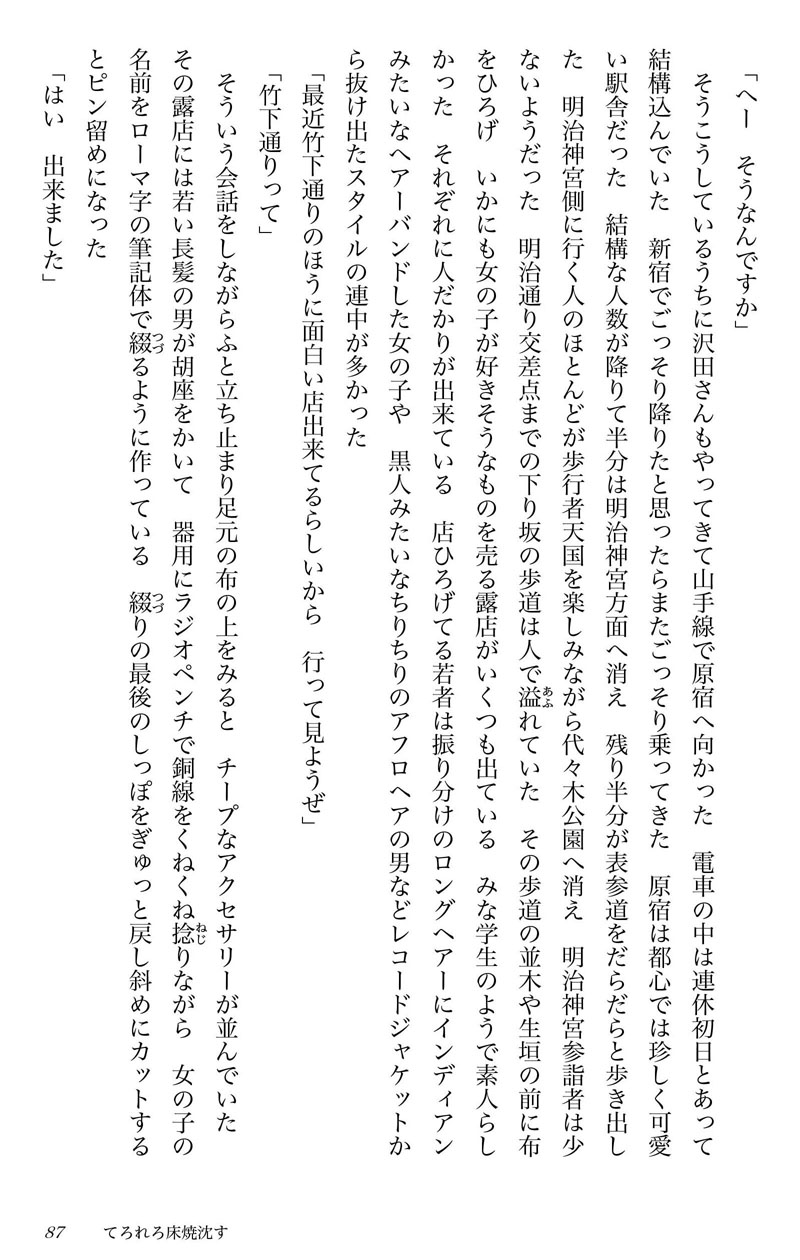 「へー　そうなんですか」
　そうこうしているうちに沢田さんもやってきて山手線で原宿へ向かった　電車の中は連休初日とあって
結構込んでいた　新宿でごっそり降りたと思ったらまたごっそり乗ってきた　原宿は都心では珍しく可愛
い駅舎だった　結構な人数が降りて半分は明治神宮方面へ消え　残り半分が表参道をだらだらと歩き出し
た　明治神宮側に行く人のほとんどが歩行者天国を楽しみながら代々木公園へ消え　明治神宮参詣者は少
ないようだった　明治通り交差点までの下り坂の歩道は人で溢れていた　その歩道の並木や生垣の前に布
をひろげ　いかにも女の子が好きそうなものを売る露店がいくつも出ている　みな学生のようで素人らし
かった　それぞれに人だかりが出来ている　店ひろげてる若者は振り分けのロングヘアーにインディアン
みたいなヘアーバンドした女の子や　黒人みたいなちりちりのアフロヘアの男などレコードジャケットか
ら抜け出たスタイルの連中が多かった
「最近竹下通りのほうに面白い店出来てるらしいから　行って見ようぜ」
「竹下通りって」
　そういう会話をしながらふと立ち止まり足元の布の上をみると　チープなアクセサリーが並んでいた
その露店には若い長髪の男が胡座をかいて　器用にラジオペンチで銅線をくねくね捻りながら　女の子の
名前をローマ字の筆記体で綴るように作っている　綴りの最後のしっぽをぎゅっと戻し斜めにカットする
とピン留めになった
「はい　出来ました」
87　てろれろ床焼沈す